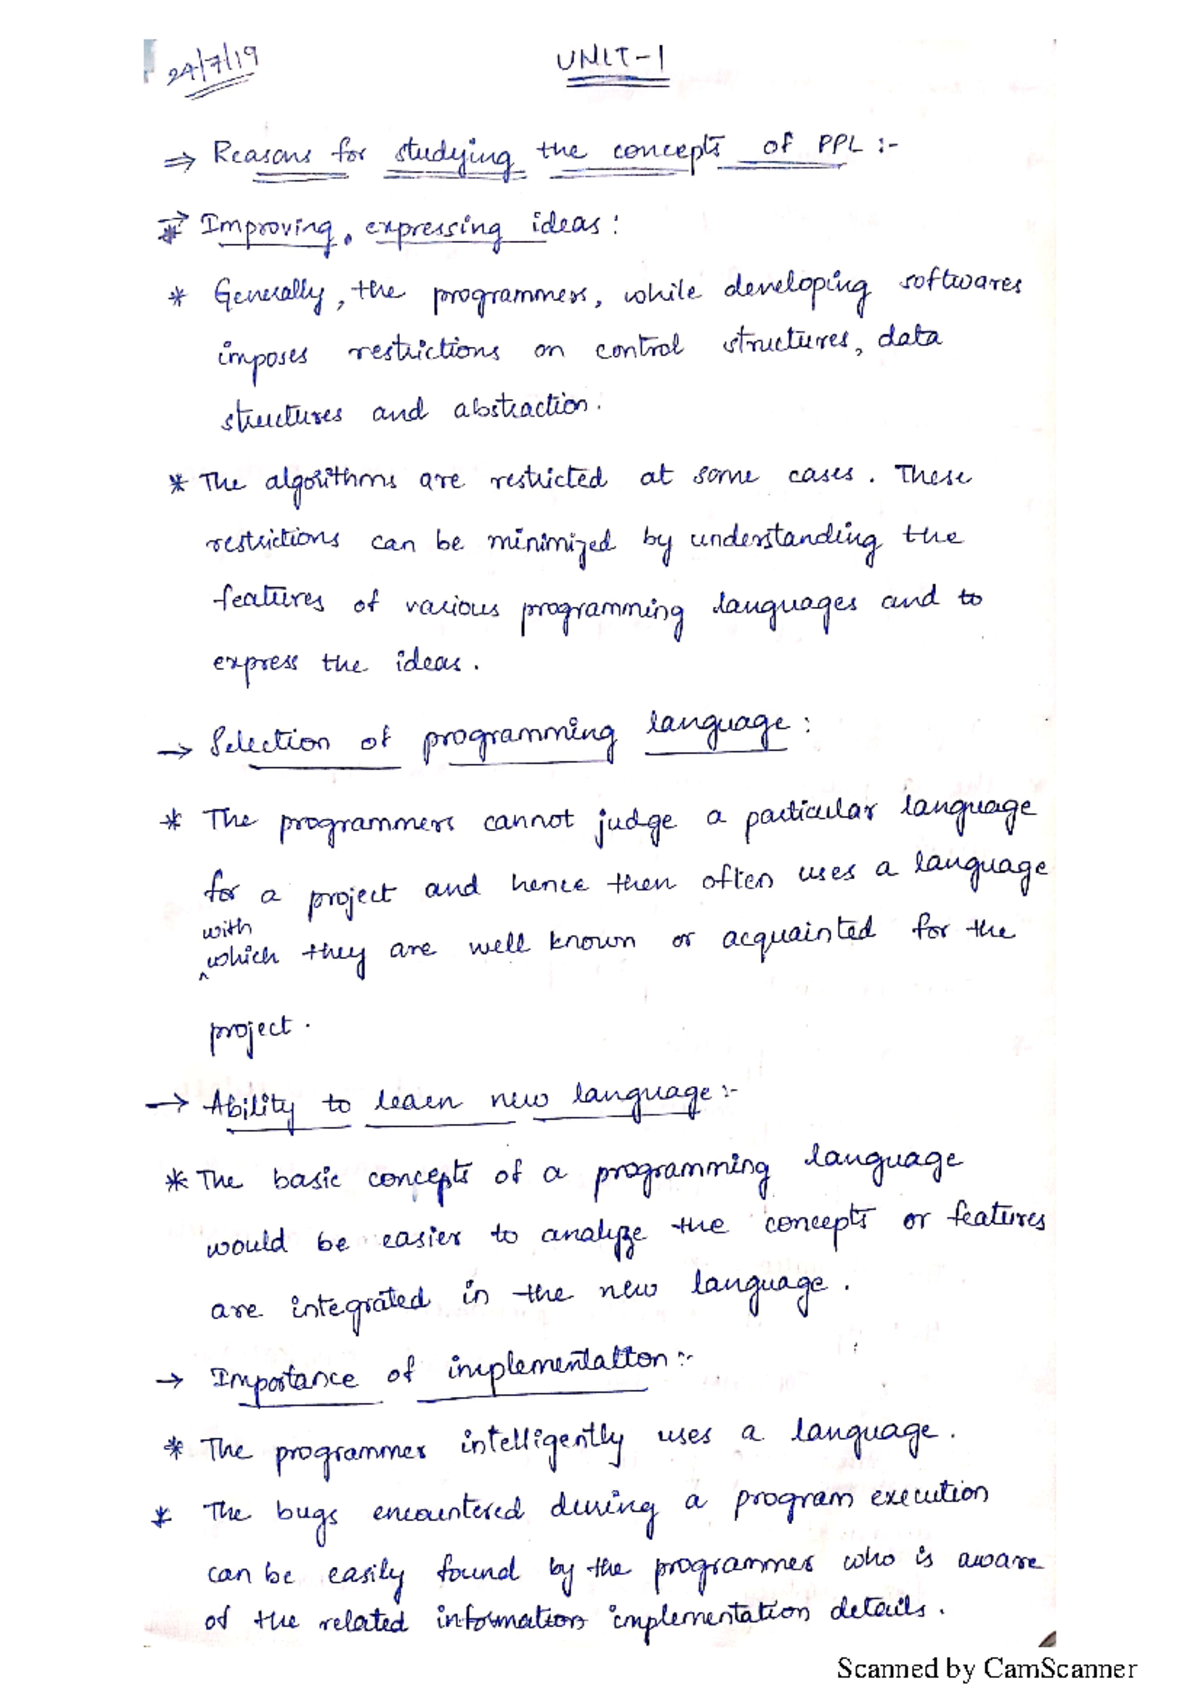 24/7/19
UNIT-1
⇒ Reasons for studying the concepts of PPL :-
⇒ Improving, expressing ideas :
* Generally, the programmers, while developing softwares
imposes restrictions on control structures, data
structures and abstraction.
* The algorithms are restricted at some cases. These
restrictions can be minimized by understanding the
features of various programming languages and to
express the ideas.
→ Selection of programming language :
* The programmers cannot judge a particular language
for a project and hence then often uses a language
with
^which they are well known or acquainted for the
project.
→ Ability to learn new language :-
* The basic concepts of a programming language
would be easier to analyze the concepts or features
are integrated in the new language.
→ Importance of implementation :-
* The programmer intelligently uses a language.
* The bugs encountered during a program execution
can be easily found by the programmer who is aware
of the related information implementation details.
Scanned by CamScanner